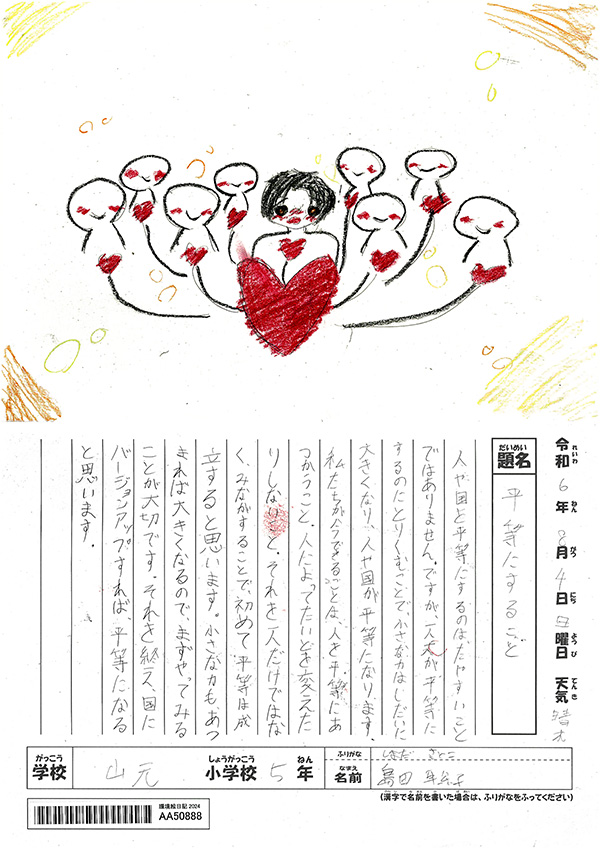 令和6年8月4日日曜日 天気 晴れ
れいわ ねん がつ にち ようび てんき
だいめい
題名 平等にすること
人や国を平等にするのはたやすいこと
ではありません。ですが、一人一人が平等に
するのにとりくむことで、小さな力はしだいに
大きくなり、人や国が平等になります。
私たちが今できることは、人を平等にあ
つかうこと。人によってたいどを変えた
りしないこと。それを一人だけではな
く、みながすることで、初めて平等は成
立すると思います。小さな力も、あつ
まれば大きくなるので、まずやってみる
ことが大切です。それを終え、国に
バージョンアップすれば、平等になる
と思います。
がっこう しょうがっこう ねん
学校 山元 小学校 5年
ふりがな しまだ さとこ
なまえ
名前 島田
(漢字で名前を書いた場合は、ふりがなをふってください)
環境絵日記 2024
AA50888